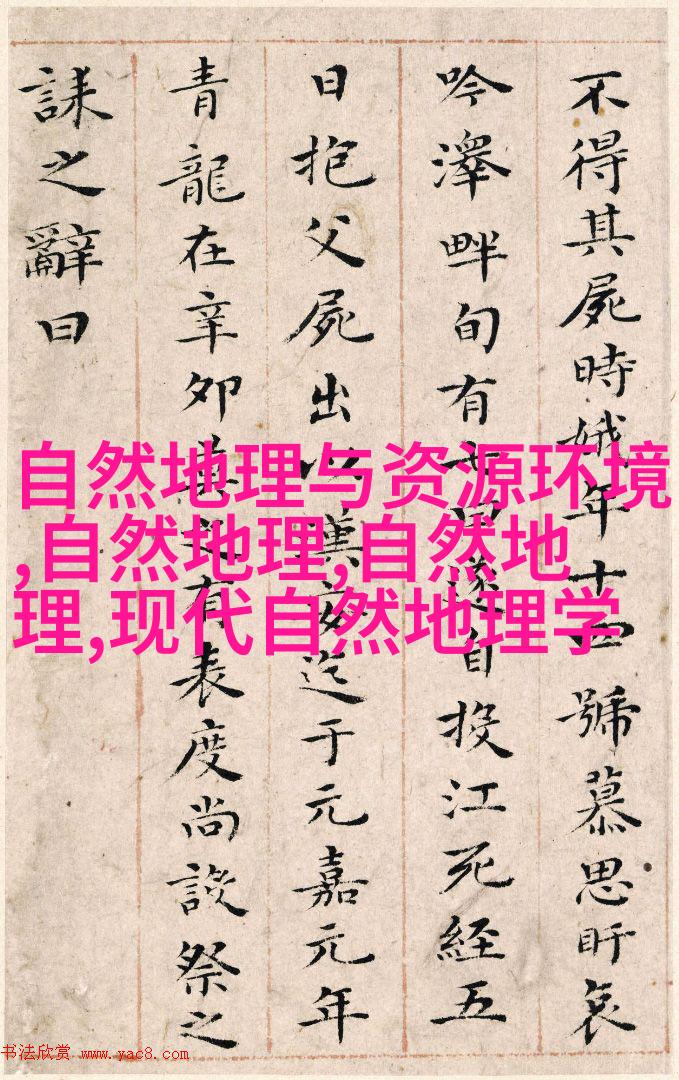 不得其屍時娥年十四號慕思盱哀
吟澤畔旬有七日遂自投江死經五
日抱父屍出以漢安迄于元嘉元年
青龍在辛卯莫之有表度尚設祭之
誄之辭曰
自然地理与资源环境
,自然地理,自然地
理,现代自然地理学
书法欣赏 www.yac8.com